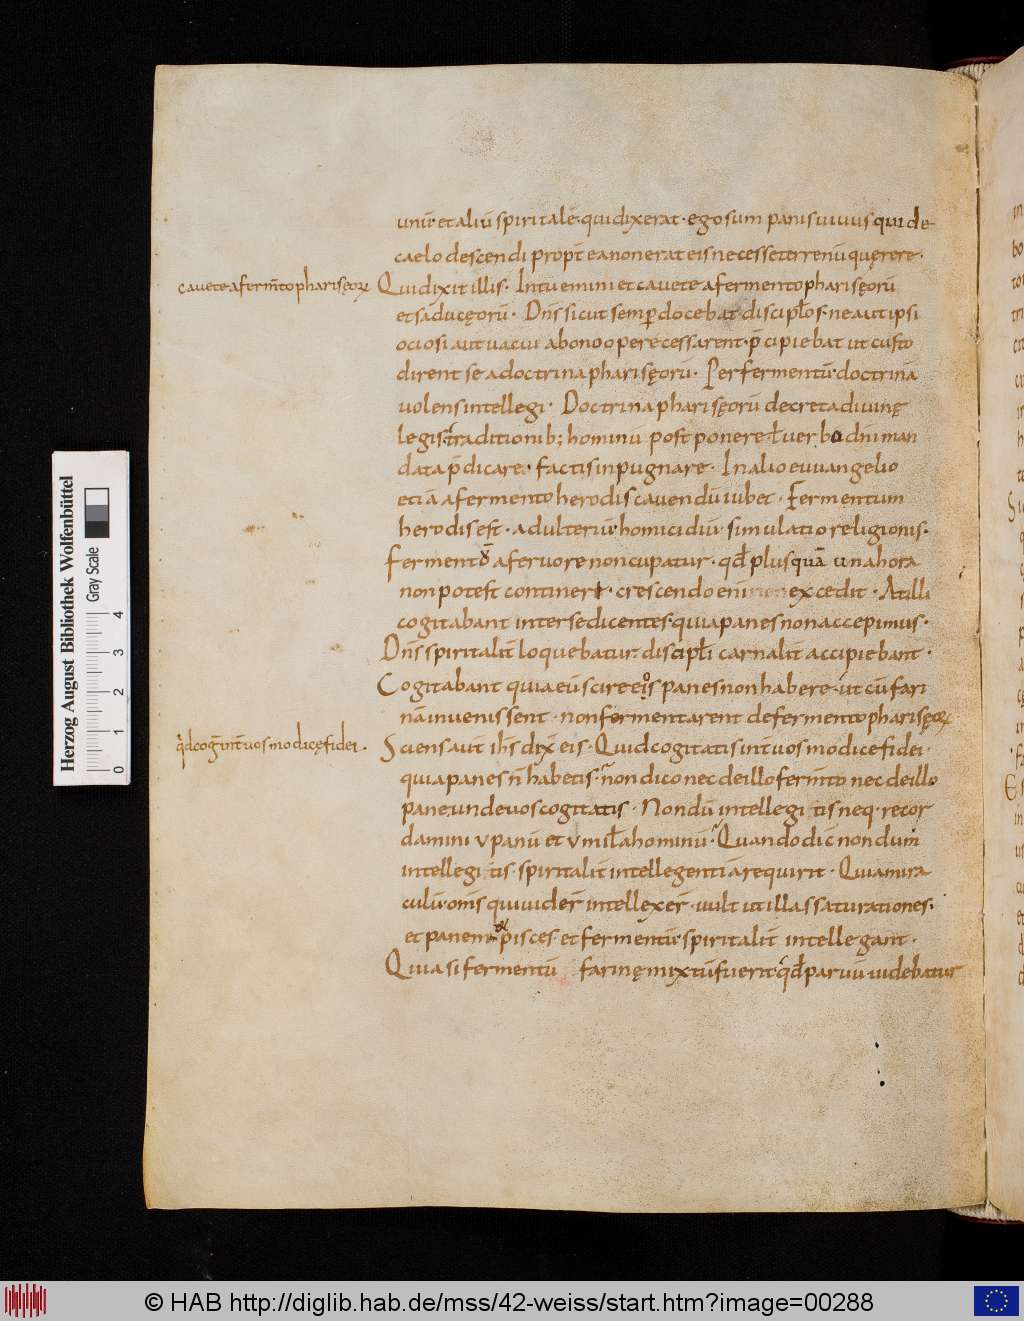 unū et aliū spiritalē qui dixerat · ego sum panis uiuus qui de
caelo descendi propt̄ ea non erat eis necesse terrenū quęrere ·
cauete a ferm̄to pharisęorꝝ
Qui dixit illis · Intuemini et cauete a fermento pharisęorū
et sadducęorū · Dn̄s sicut semꝑ docebat discipłos · ne aut ipsi
ociosi aut uacui a bono opere cessarent · p̄cipiebat ut custo
dirent se a doctrina pharisęorū · Per fermentū doctrinā
uolens intellegi · Doctrina pharisęorū decreta diuinę
legis traditionib; hominū postponere ł uerbo dn̄i man
data p̄dicare · factis inpugnare · In alio euuangelio
etiā a fermento herodis cauendū iubet · Fermentum
herodis est · adulteriū homicidiū · simulatio religionis ·
Fermentū a feruore noncupatur · qđ plus quā una hora
non potest contineri · crescendo enim excedit · At illi
cogitabant inter se dicentes · quia panes non accepimus ·
Dn̄s spiritalit̄ loquebatur discipłi carnalit̄ accipiebant ·
Cogitabant quia eū scire eos panes non habere · ut cū fari
nā inuenissent · non fermentarent de fermento pharisęorꝝ
qđ cogit̄ int̄ uos modicę fidei ·
Sciens aut̄ ih̄s dix̄ eis · Quid cogitatis int̄ uos modice fidei ·
quia panes n̄ habetis · non dico nec de illo ferm̄to nec de illo
pane unde uos cogitatis · Nondū intellegitis neq · recor
damini v panū et v milła hominū · Quando dic̄ nondum
intellegitis · spiritalit̄ intellegentiā requirit · Quia mira
culū om̄s qui uider̄ intellexer̄ · uult ut illas saturationes ·
et panem et pisces · et fermentū spiritalit̄ intellegant ·
Quia si fermentū farinę mixtū fuerit qđ paruū uidebatur
Herzog August Bibliothek Wolfenbüttel
Gray Scale
0 1 2 3 4
© HAB http://diglib.hab.de/mss/42-weiss/start.htm?image=00288